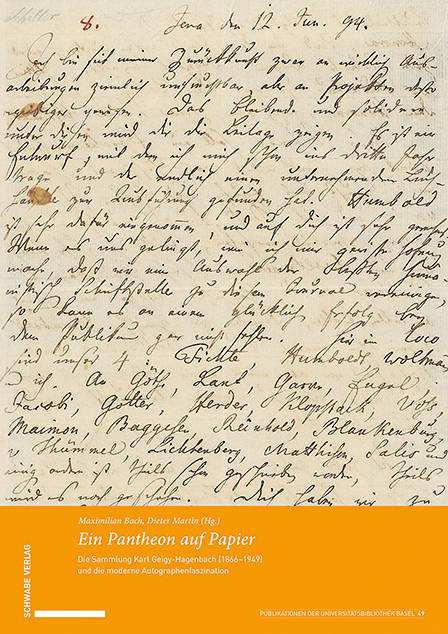 Schiller
8. Jena den 12. Jun. 94.
Ich bin seit meiner Zurückkunft zwar an wirklich Aus-
arbeitungen ziemlich unfruchtbar, aber an Projekten desto
gewesen. Das bleibende und solideste
unter diesen wird dir die Beilage zeigen. Es ist ein
Entwurf, mit dem ich mich schon ins dritte Jahr
trage und der endlich einen unternehmenden Buch-
zur Ausführung gefunden hat. Humbold
ist sehr dafür eingenommen, und auf Dich ist sehr
Wenn es uns gelingt, wie ich mir gewisse Hofnung
mache, daß wir eine Auswahl der Besten huma-
nistisch Schriftsteller zu diesem Journal vereinigen
so kann es an einem glücklich Erfolg bey
dem Publikum gar nicht fehlen. Hier in Loco
sind unser 4 Fichte, Humboldt, Woltman
ich. An Göth, Kant, Garve, Engel
Jacobi, Gotter, Herder, Klopstock, Voß
Maimon, Baggesen, Reinhold, Blankenburg
v Thümmel, Lichtenberg, Matthison, Salis und
einig andre ist theils schon geschrieben worden, theils
wird es noch geschehen. Dich haben wir zu
Maximilian Bach, Dieter Martin (Hg.)
Ein Pantheon auf Papier
Die Sammlung Karl Geigy-Hagenbach (1866–1949)
und die moderne Autographenfaszination
SCHWABE VERLAG
PUBLIKATIONEN DER UNIVERSITÄTSBIBLIOTHEK BASEL 49